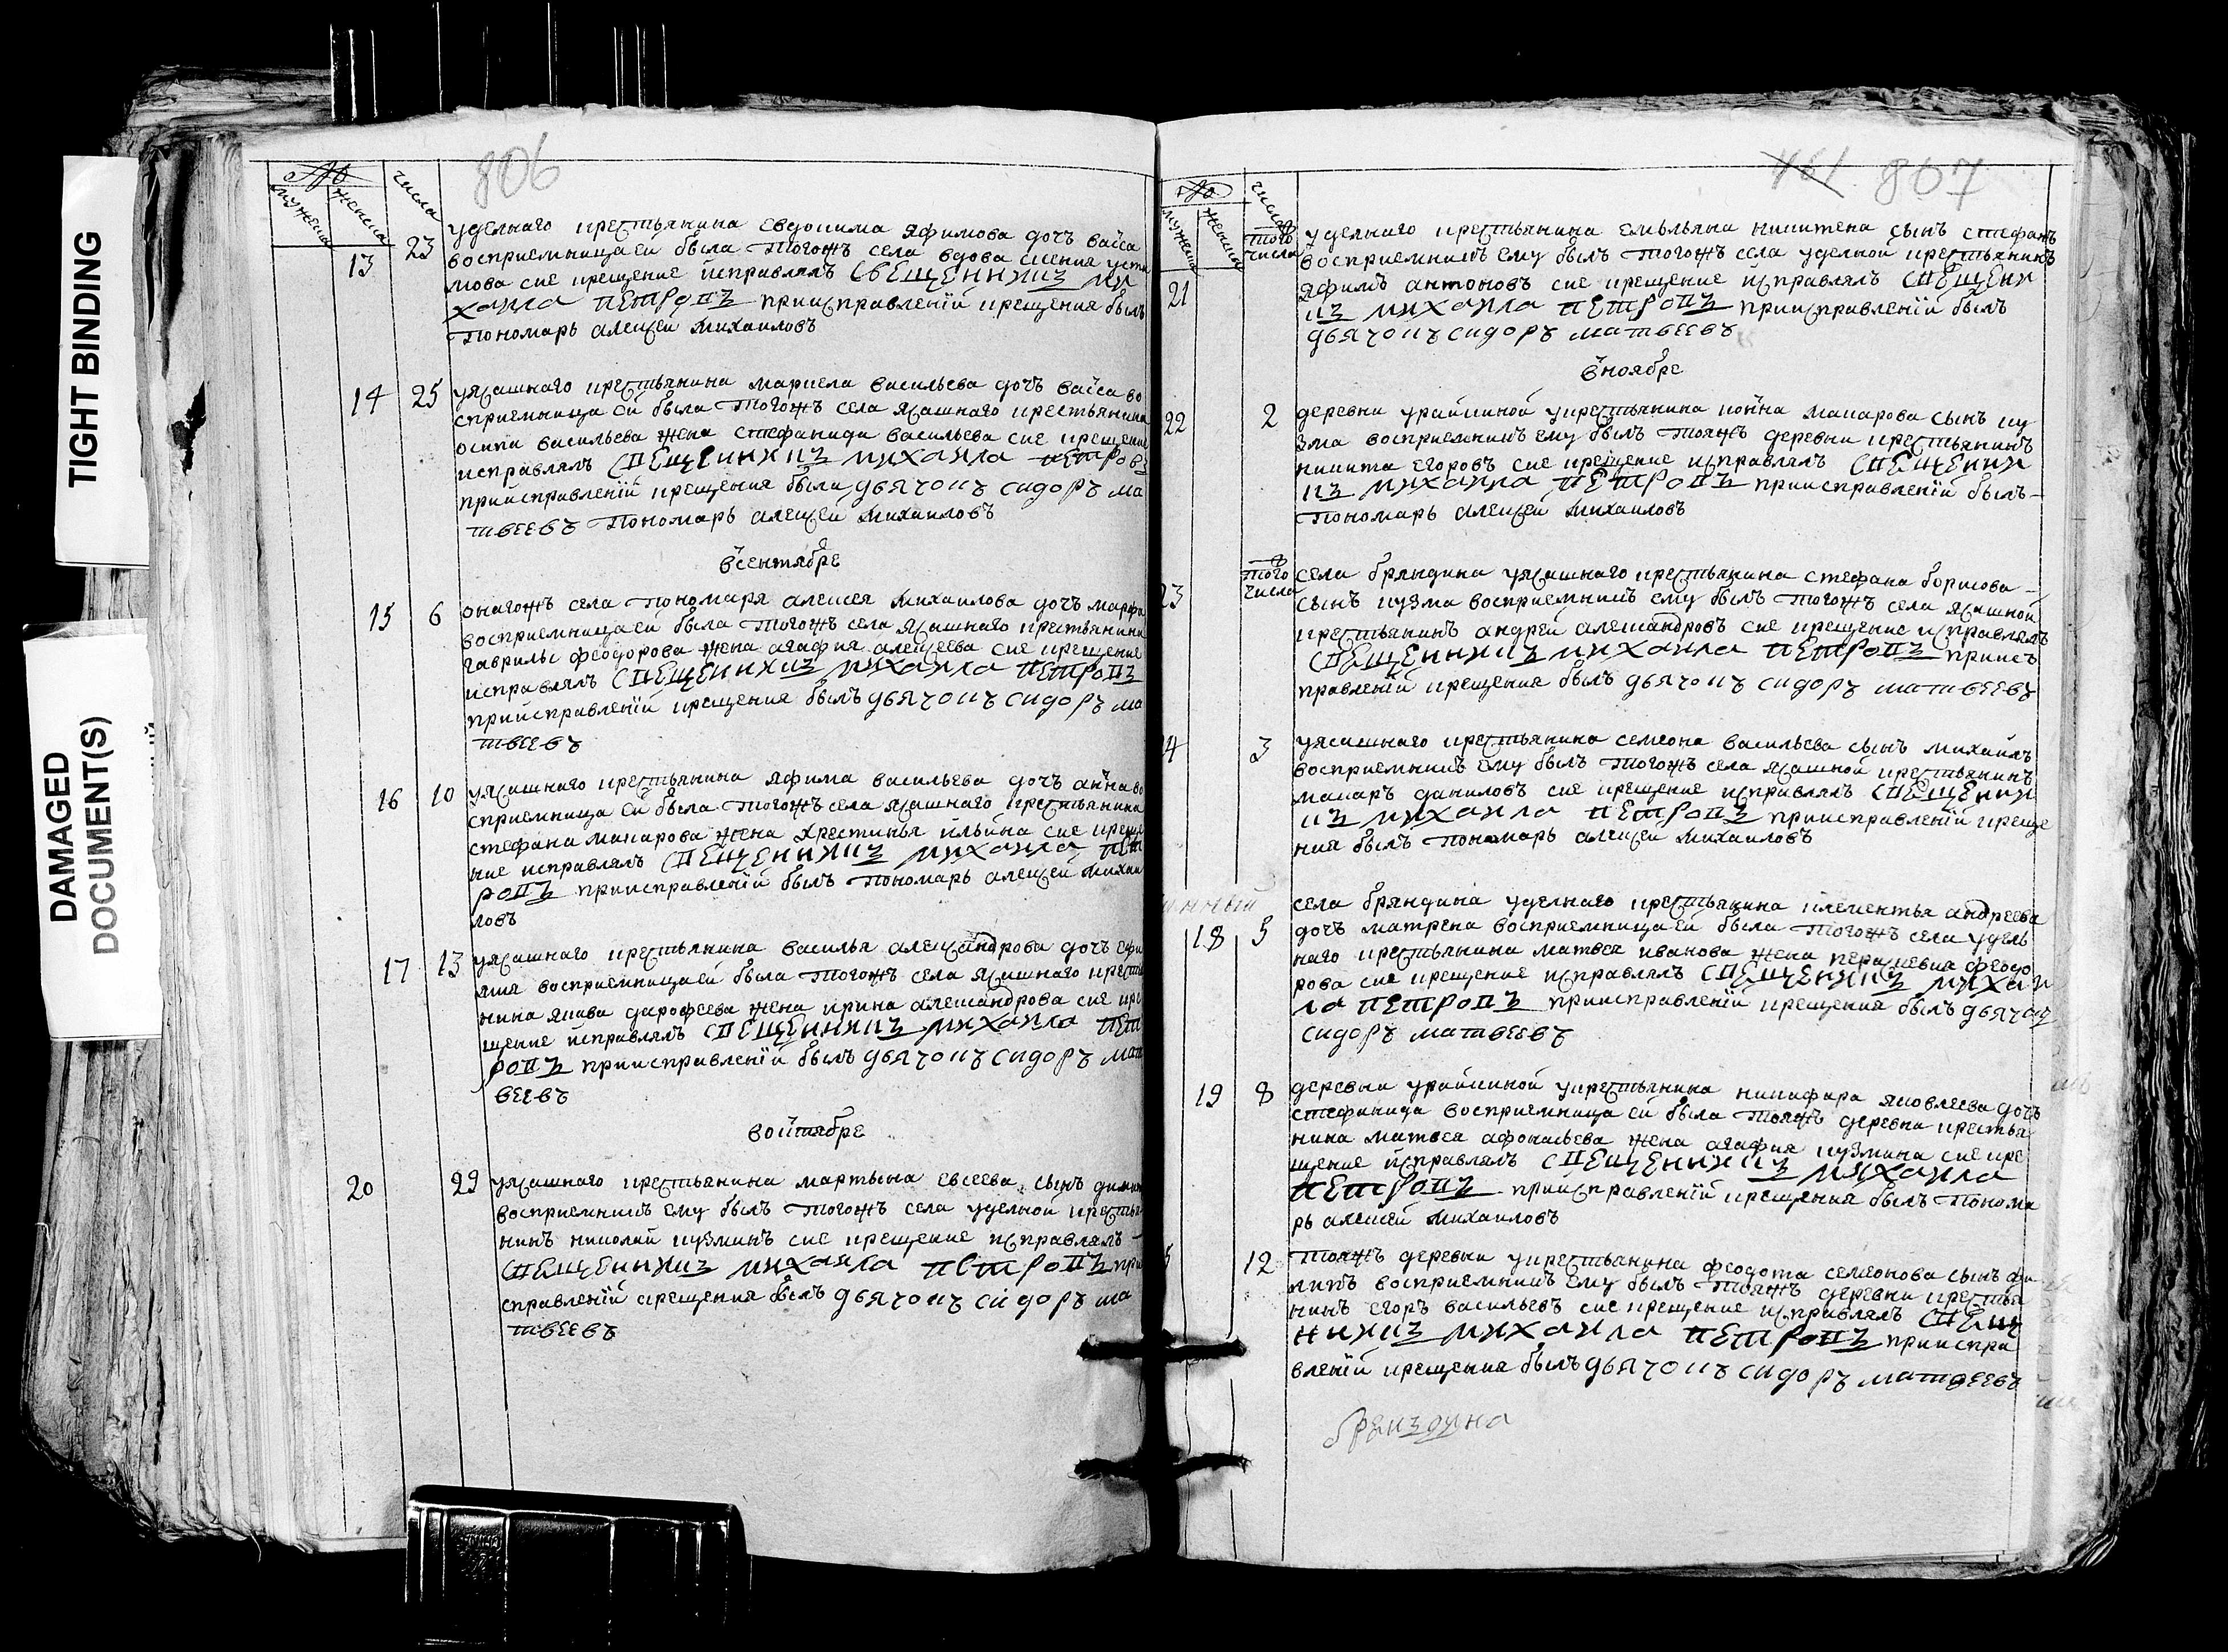 TIGHT BINDING
DAMAGED
DOCUMENT(S)
806
№ числа
мужеска женска
13 23 уделнаго крестьянина евдокима яфимова дочъ васса
восприемница ей была тогожъ села вдова ксения уста
мова сие крещение исправлялъ священникъ ми
хаила петровъ приисправлении крещения былъ
пономарь алексей михаиловъ
14 25 уясашнаго крестьянина маркела васильева дочъ васса во
сприемница ей была тогожъ села ясашнаго крестьянина
осипа васильева жена стефанида васильева сие крещение
исправлялъ священникъ михаила петровъ
приисправлении крещения были дьячокъ сидоръ ма
твеевъ пономарь алексей михаиловъ
всентябре
15 6 онагожъ села пономаря алексея михаилова дочъ марфа
восприемница ей была тогожъ села ясашнаго крестьянина
гаврилы феодорова жена агафия алексеева сие крещение
исправлялъ священникъ михаила петровъ
приисправлении крещения былъ дьячокъ сидоръ ма
твеевъ
16 10 уясашнаго крестьянина яфима васильева дочъ анна во
сприемница ей была тогожъ села ясашнаго крестьянина
стефана макарова жена хрестинья ильина сие креще
ние исправлялъ священникъ михаила пет
ровъ приисправлении былъ пономарь алексей михаи
ловъ
17 13 уясашнаго крестьянина василья александрова дочъ
восприемница ей была тогожъ села ясашнаго кресть
нина якава дарофеева жена ирина александрова сие кре
щение исправлялъ священникъ михаила пет
ровъ приисправлении былъ дьячокъ сидоръ мат
веевъ
воктябре
20 29 уясашнаго крестьянина мартына евсеева сынъ
восприемникъ ему былъ тогожъ села уделной крестья
нинъ николай кузминъ сие крещение исправлялъ
священникъ михаила петровъ при
справлении крещения былъ дьячокъ сидоръ ма
твеевъ
461 807
№ числа
мужеска женска
21 того числа уделнаго крестьянина емельяна никитена сынъ стефанъ
восприемникъ ему былъ тогожъ села уделной крестьянинъ
яфимъ антоновъ сие крещение исправлялъ священи
къ михаила петровъ приисправлении былъ
дьячокъ сидоръ матвеевъ
вноябре
22 2 деревни урайкиной укрестьянина макарова сынъ ку
зма восприемникъ ему былъ тояжъ деревни крестьянинъ
никита егоровъ сие крещение исправлялъ священи
къ михаила петровъ приисправлении былъ
пономарь алексей михаиловъ
23 того числа села бряндина уясашнаго крестьянина стефана борисова
сынъ кузма восприемникъ ему былъ тогожъ села ясашной
крестьянинъ андрей александровъ сие крещение исправлялъ
священникъ михаила петровъ приисъ
правлении крещения былъ дьячокъ сидоръ матвеевъ
4 3 уясашнаго крестьянина семеона васильева сынъ михаилъ
восприемникъ ему былъ тогожъ села ясашной крестьянинъ
макаръ даниловъ сие крещение исправлялъ священи
къ михаила петровъ приисправлении креще
ния былъ пономарь алексей михаиловъ
18 5 села бряндина уделнаго крестьянина клементья андреева
дочъ матрена восприемница ей была тогожъ села удель
наго крестьянина матвея иванова жена параскевия феодо
рова сие крещение исправлялъ священникъ михаи
ла петровъ приисправлении крещения былъ дьячокъ
сидоръ матвеевъ
19 8 деревни урайкиной укрестьянина никифара яковлева дочъ
стефанида восприемница ей была тояжъ деревни крестья
нина матвея афонасьева жена агафия кузмина сие кре
щение исправлялъ священникъ михаила
петровъ приисправлении крещения былъ понома
рь алексей михаиловъ
5 12 тояжъ деревни укрестьянина феодота семеонова сынъ фи
липъ восприемникъ ему былъ тояжъ деревни крестья
нинъ егоръ васильевъ сие крещение исправлялъ свяще
нникъ михаила петровъ приисправ
влении крещения былъ дьячокъ сидоръ матвеевъ